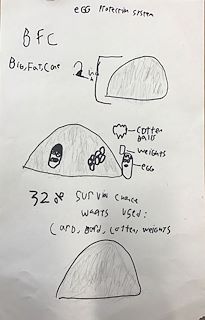 eGG Protection System
BFC
Big, Fat, Cone
cotten
balls
weights
egg
32% Survive Chance
whats used:
Card, Bord, Cotten, weights